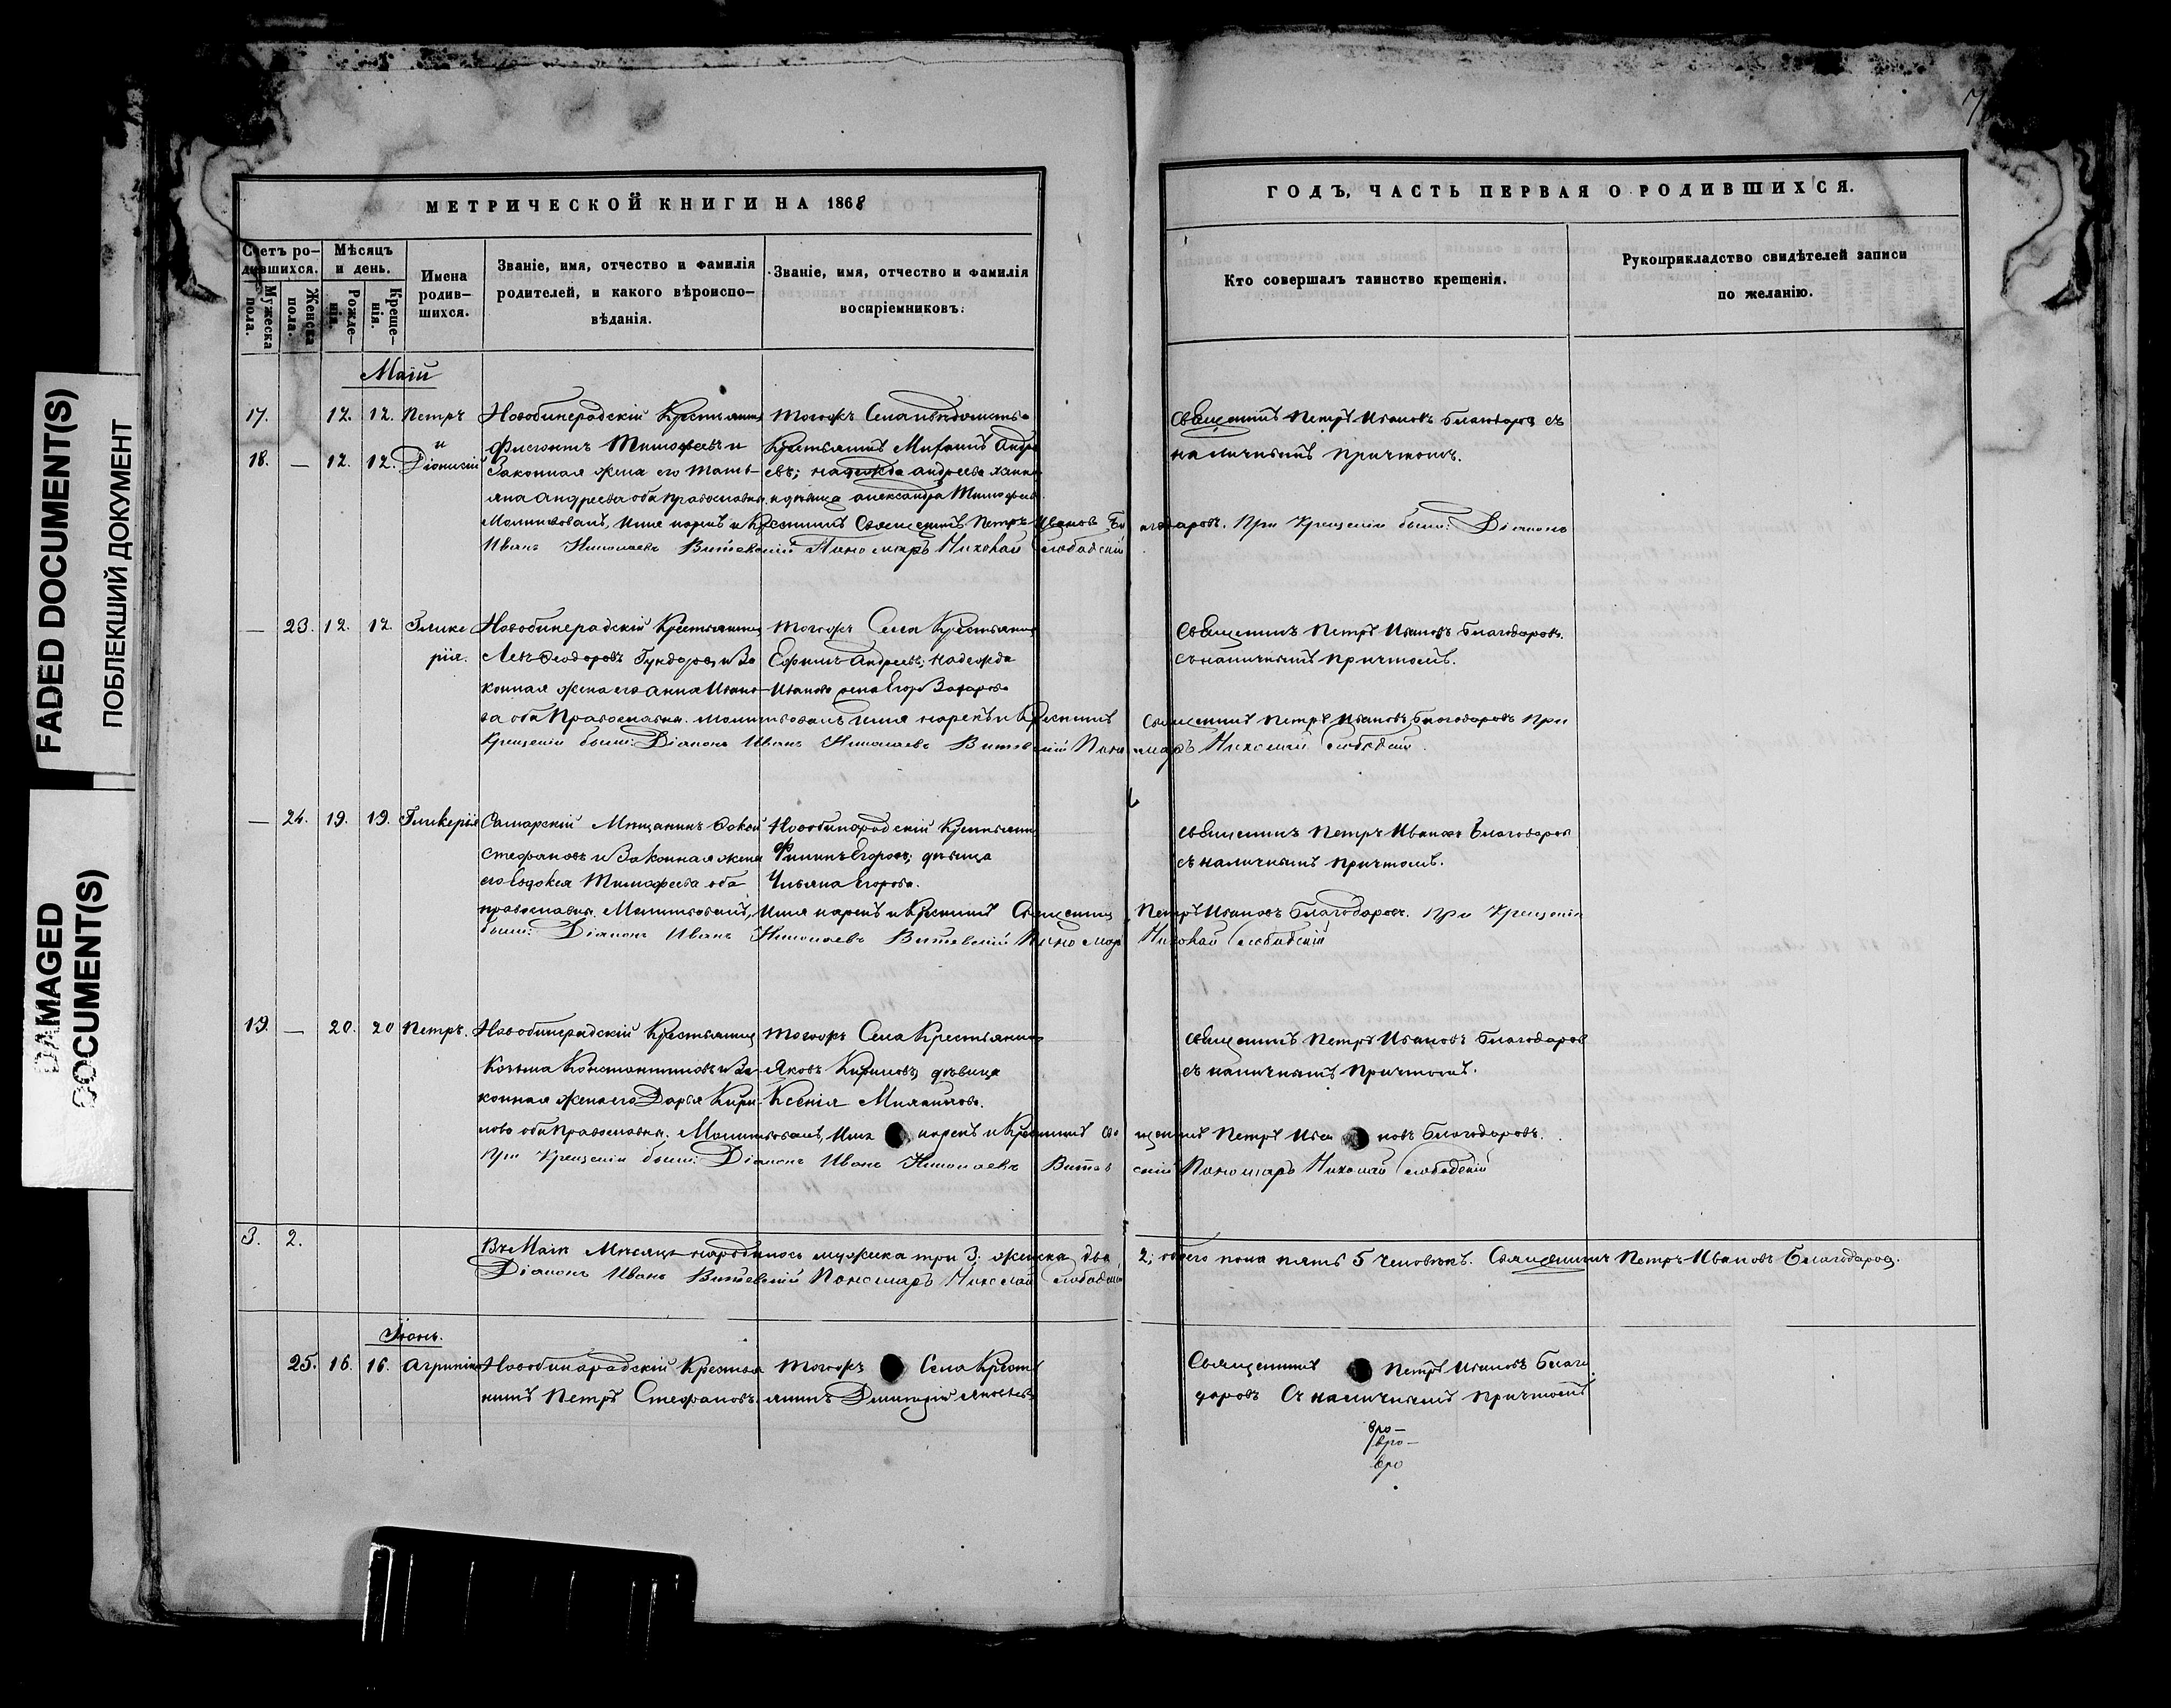 FADED DOCUMENT(S)
ПОБЛЕКШИЙ ДОКУМЕНТ
DAMAGED
DOCUMENT(S)
МЕТРИЧЕСКОЙ КНИГИ НА 1868
Счетъ родившихся.
Мужеска пола.
Женска пола.
Мѣсяцъ и день.
Рожденія.
Крещенія.
Имена родившихся.
Званіе, имя, отчество и фамилія
родителей, и какого вѣроиспо-
вѣданія.
Званіе, имя, отчество и фамилія
воспріемниковъ.
ГОДЪ, ЧАСТЬ ПЕРВАЯ О РОДИВШИХСЯ.
Кто совершалъ таинство крещенія.
Рукоприкладство свидѣтелей записи
по желанію.
Маій
17. 12. 12. Петръ Крестьянинъ тогожъ Села Священникъ Петръ Ивановъ Благодаровъ съ
и Тимофеевъ и Крестьянинъ Андре наличнымъ причтомъ.
18. — 12. 12. Діонисій Законная жена его Тать- евъ; Надежда Андреева
яна Андреева оба православны. и дѣвица Александра Тимофеева
Молитвовалъ, Имя нарекъ и Крестилъ Священникъ Петръ Ивановъ Благодаровъ. При Крещеніи были: Діаконъ
Иванъ Николаевъ Витевскій Пономарь Николай Слободскій
— 23. 12. 12 Глике Крестьянинъ тогожъ Села Крестьянинъ Священникъ Петръ Ивановъ Благодаровъ.
рія. Левъ Феодоровъ и За Ефимъ Андреевъ; Надежда съ наличнымъ причтомъ.
конная жена его Анна Ивано- Иванова жена Егора Захарова
ва оба Православны. Молитвовалъ имя нарекъ и Крестилъ Священникъ Петръ Ивановъ Благодаровъ при
Крещеніи были: Діаконъ Иванъ Николаевъ Витевскій Пономарь Николай Слободскій
— 24. 19. 19. Гликерія Самарскій Мѣщанинъ Крестьянинъ Священникъ Петръ Ивановъ Благодаровъ
Стефановъ и Законная жена Филипъ Егоровъ; дѣвица съ наличнымъ причтомъ.
его Евдокея Тимофеева оба Ульяна Егорова.
православны. Молитвовалъ, Имя нарекъ и Крестилъ Священникъ Петръ Ивановъ Благодаровъ. При Крещеніи
были: Діаконъ Иванъ Николаевъ Витевскій Пономарь Николай Слободскій
19 — 20. 20 Петръ. Крестьянинъ тогожъ Села Крестьянинъ Священникъ Петръ Ивановъ Благодаровъ
Козьма Константиновъ и За- Яковъ Кириловъ, дѣвица съ наличнымъ причтомъ.
конная жена его Дарья Кири- Ксенія Михайлова.
лова оба Православны. Молитвовалъ, Имя нарекъ и Крестилъ Священникъ Петръ Ивановъ Благодаровъ.
При Крещеніи были: Діаконъ Иванъ Николаевъ Витевскій Пономарь Николай Слободскій
3. 2. Въ Маіѣ Мѣсяцѣ народилось мужеска три 3; женска два 2; обоего пола пять 5 человѣкъ. Священникъ Петръ Ивановъ Благодаровъ.
Діаконъ Иванъ Витевскій Пономарь Николай Слободскій
Іюнь.
25. 16. 16. Крестья тогожъ Села Крестьь Священникъ Петръ Ивановъ Благо
нинъ Петръ Стефановъ. янинъ Димитрій Яковлевъ даровъ Съ наличнымъ причтомъ